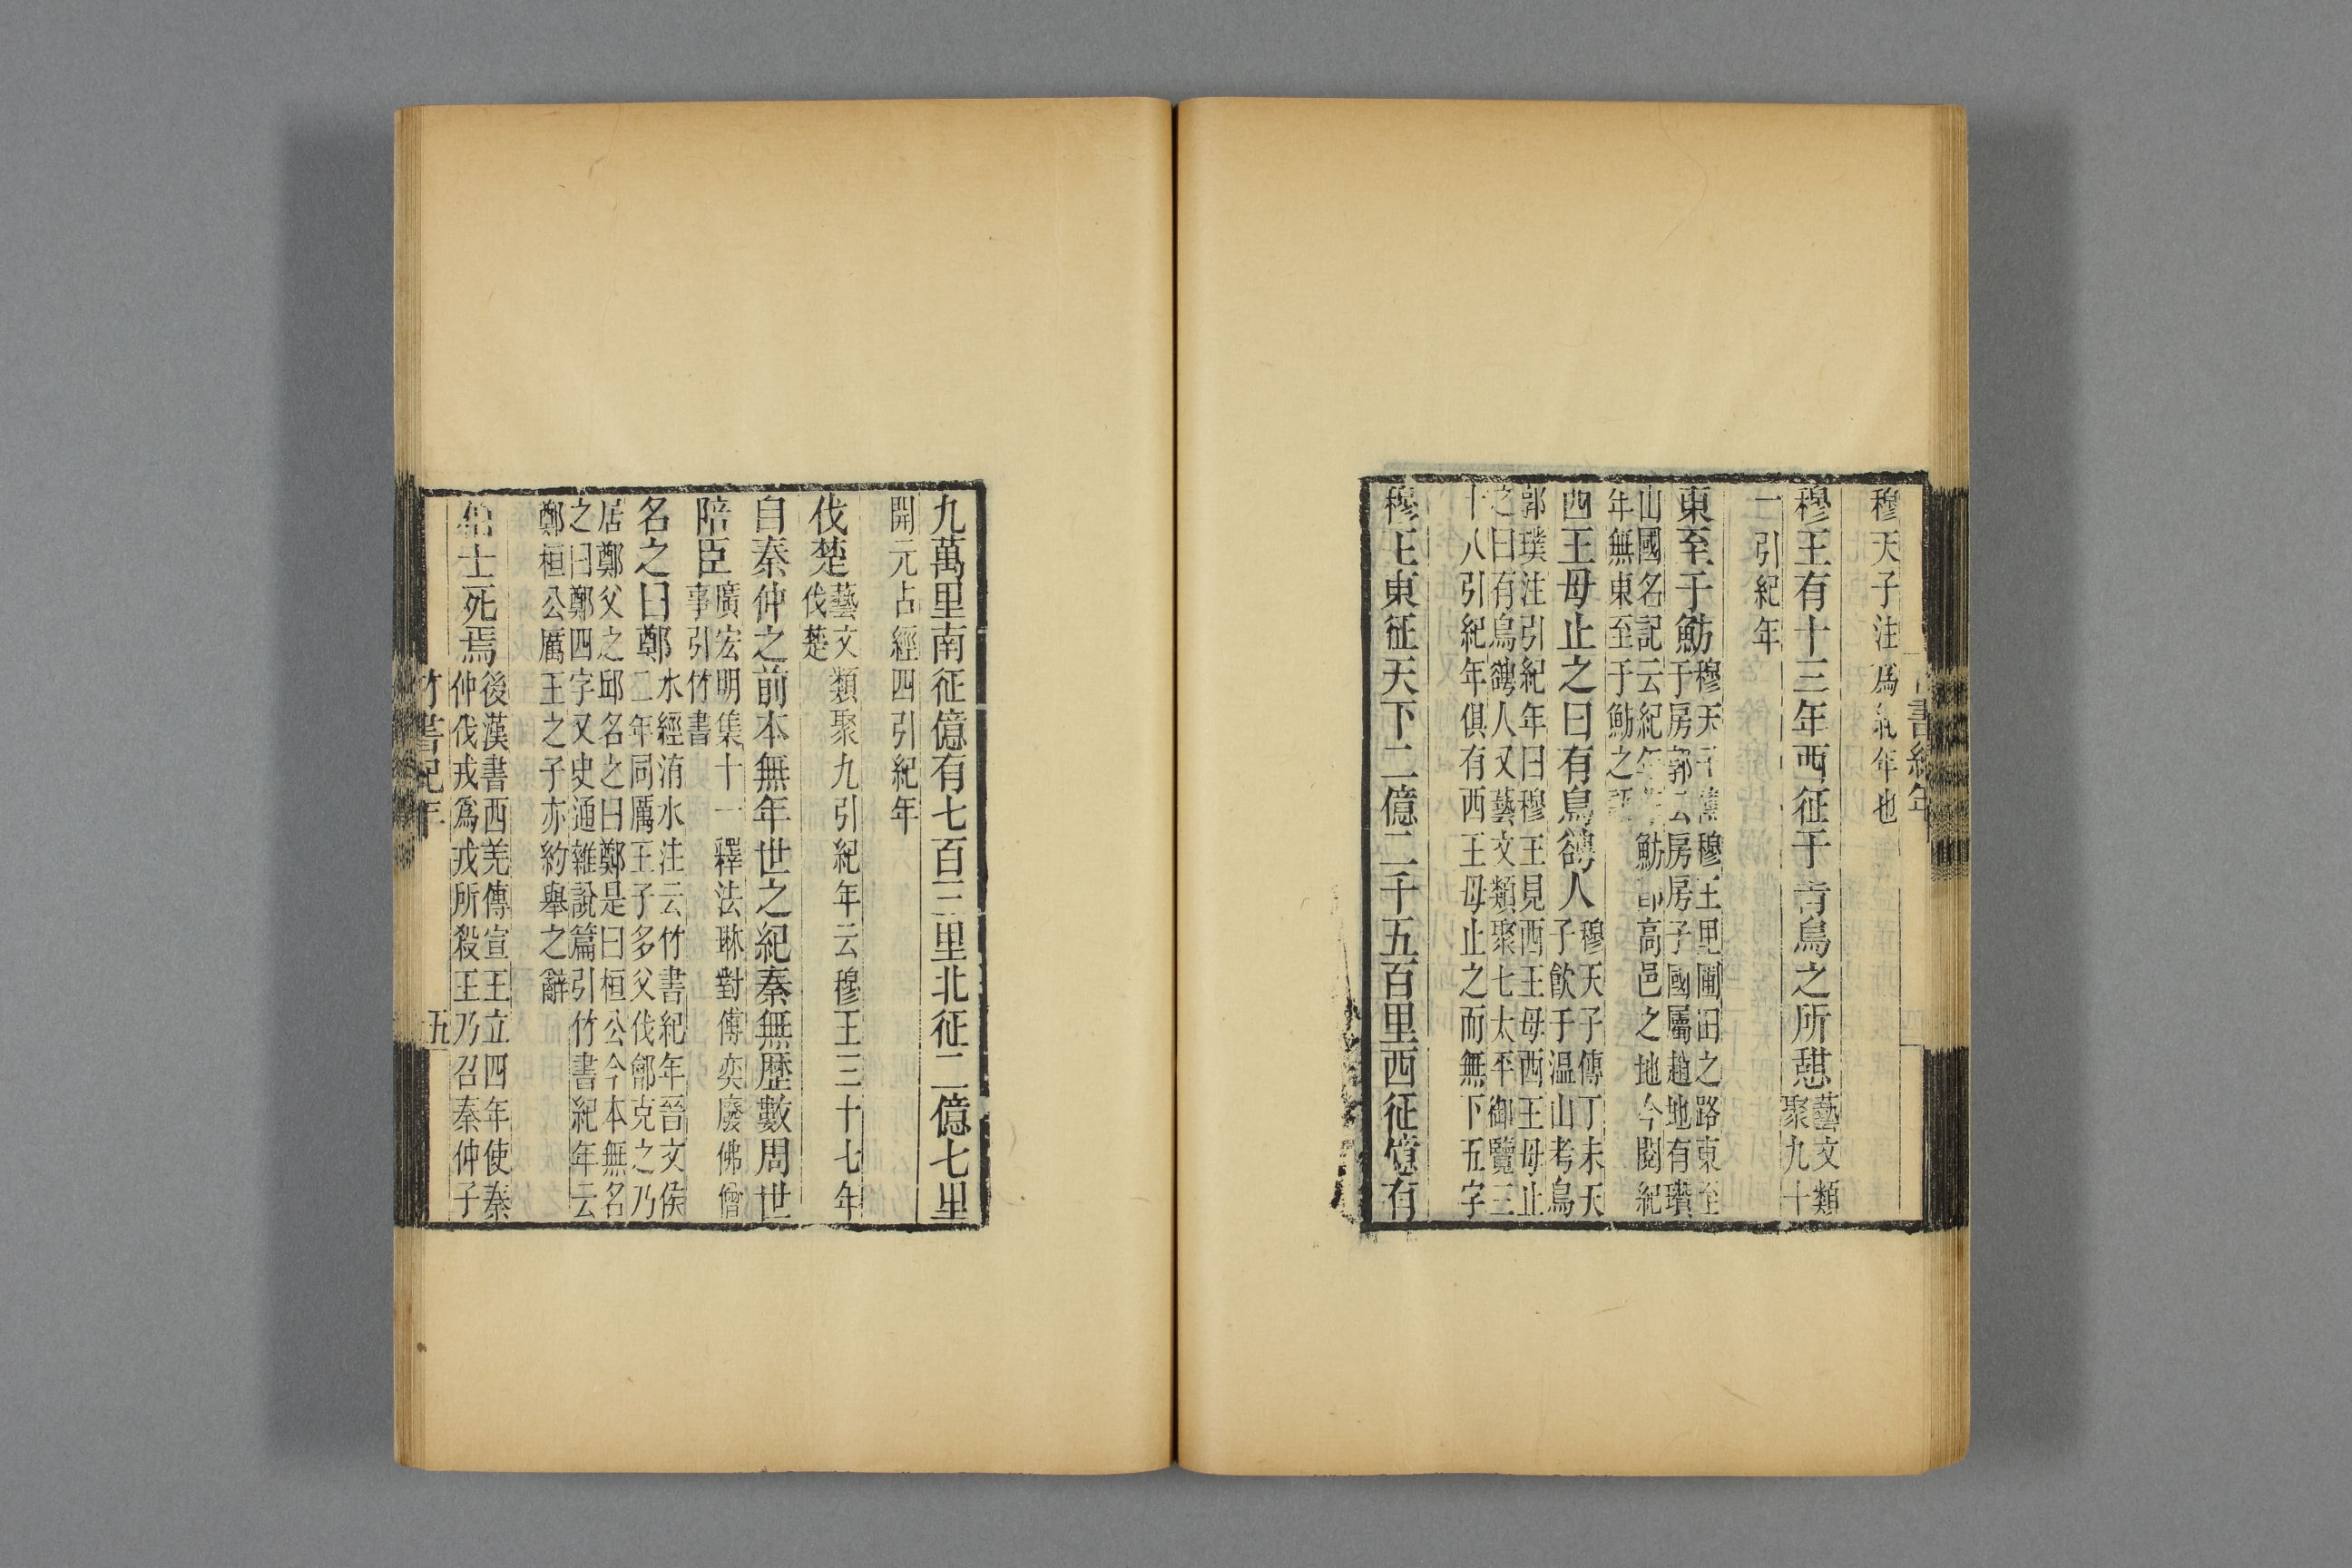 書紀年
穆天子注為紀年也
穆王有十三年西征于青鳥之所憩藝文類
聚九十
一引紀年
東至于魴穆天子傳穆王里圃田之路東至
于房郭云房房子國屬趙地有瓚
山國名記云紀年魴即高邑之地今閱紀
年無東至于魴之語
西王母止之曰有鳥𪁪人穆天子傳丁未天
子飲于温山考鳥
郭璞注引紀年曰穆王見西王母西王母止
之曰有鳥𪁪人又藝文類聚七太平御覽三
十八引紀年俱有西王母止之而無下五字
穆王東征天下二億二千五百里西征億有
九萬里南征億有七百三里北征二億七里
開元占經四引紀年
伐楚藝文類聚九引紀年云穆王三十七年
伐楚
自秦仲之前本無年世之紀秦無歷數周世
陪臣廣宏明集十一釋法琳對傅奕廢佛僧
事引竹書
名之曰鄭水經洧水注云竹書紀年晉文侯
二年同厲王子多父伐鄶克之乃
居鄭父之邱名之曰鄭是曰桓公今本無名
之曰鄭四字又史通雜說篇引竹書紀年云
鄭桓公厲王之子亦約舉之辭
士死焉後漢書西羌傳宣王立四年使秦
仲伐戎為戎所殺王乃召秦仲子
竹書紀年 五